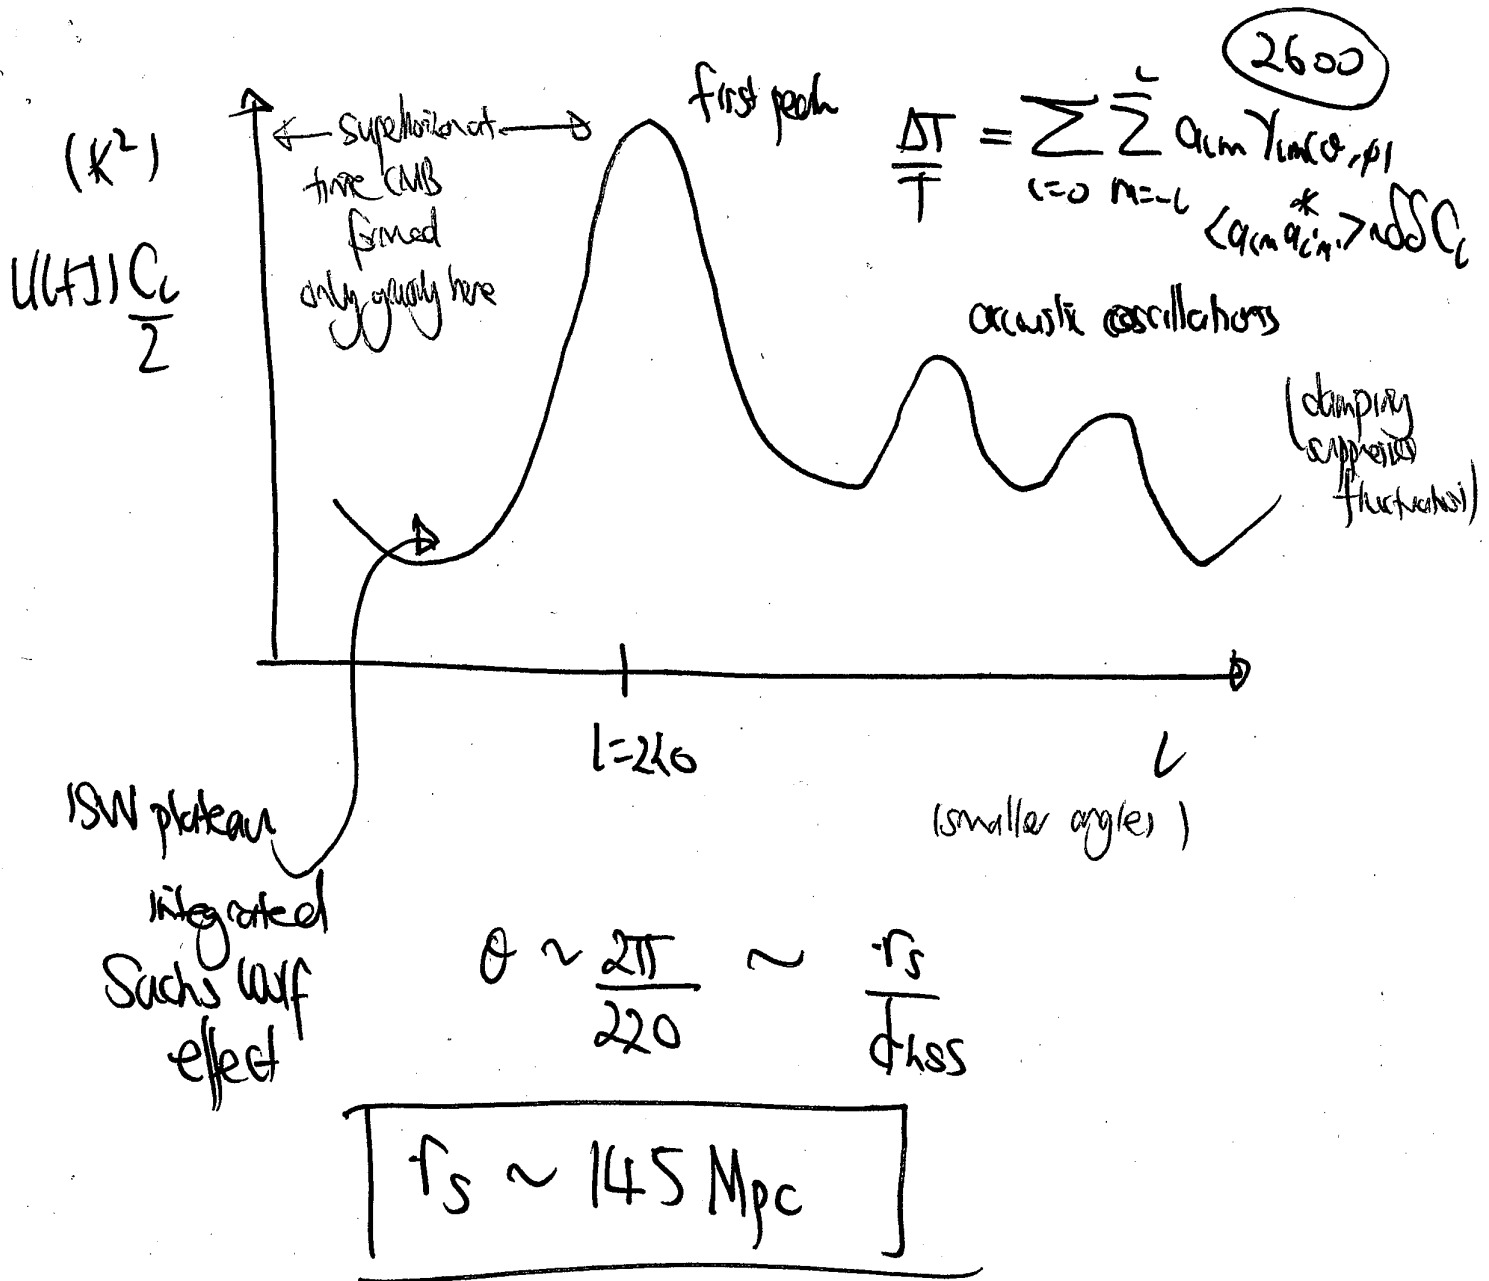 2600
first peak
(K²)
← superhorizon at →
time CMB
formed
only gravity here
ΔT/T = Σ_{l=0} Σ_{m=-l}^{l} a_{lm} Y_{lm}(θ,φ)
<a_{lm} a*_{l'm'}> ~ δδ C_l
l(l+1) C_l/2
acoustic oscillations
(damping
suppresses
fluctuations)
l=220
l
(smaller angles)
ISW plateau
integrated
Sachs Wolf
effect
θ ~ 2π/220 ~ r_s/d_LSS
r_s ~ 145 Mpc